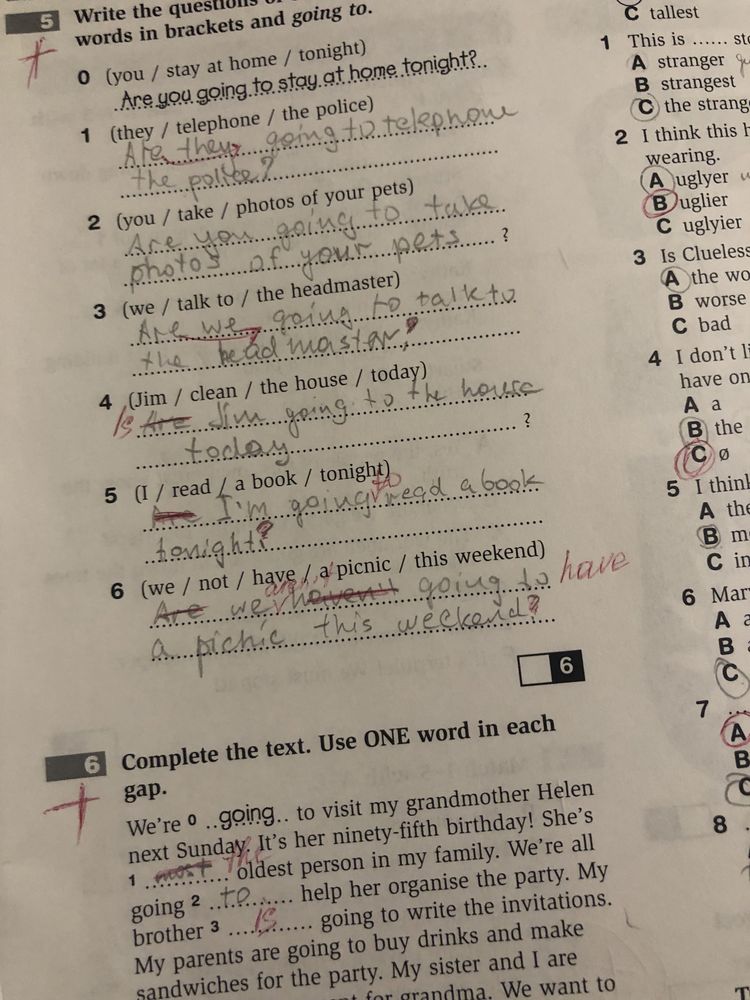 5 Write the questions
words in brackets and going to.
0 (you / stay at home / tonight)
Are you going to stay at home tonight?
1 (they / telephone / the police)
Are they going to telephone
the police?
2 (you / take / photos of your pets)
Are you going to take
photos of your pets ?
3 (we / talk to / the headmaster)
Are we going to talk to
the headmaster?
4 (Jim / clean / the house / today)
Is Are Jim going to the house
today ?
5 (I / read / a book / tonight)
to
Are I'm going read a book
tonight?
6 (we / not / have / a picnic / this weekend)
aren't
Are we haven't going to have
a picnic this weekend?
6
6 Complete the text. Use ONE word in each
gap.
We're 0 going to visit my grandmother Helen
next Sunday. It's her ninety-fifth birthday! She's
1 most the oldest person in my family. We're all
going 2 to help her organise the party. My
brother 3 is going to write the invitations.
My parents are going to buy drinks and make
sandwiches for the party. My sister and I are
for grandma. We want to
C tallest
1 This is ......
A stranger
B strangest
C the
2 I think this
wearing.
A uglyer
B uglier
C uglyier
3 Is Clueless
A the
B worse
C bad
4 I don't
have
A a
B the
C ø
5 I think
A the
B
C
6
A
B
C
7 ...
A
B
C
8